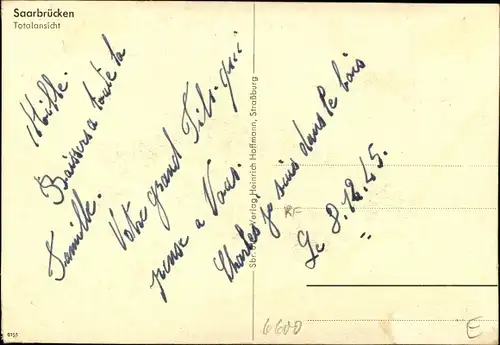 Saarbrücken
Totalansicht
Mille.
Baisers a toute la
Famille.
Votre grand Fils qui
pense a Vous.
Charles je suis dans le bois
Le 8.12.45.
Verlag Heinrich Hoffmann, Straßburg
RF
6600
E